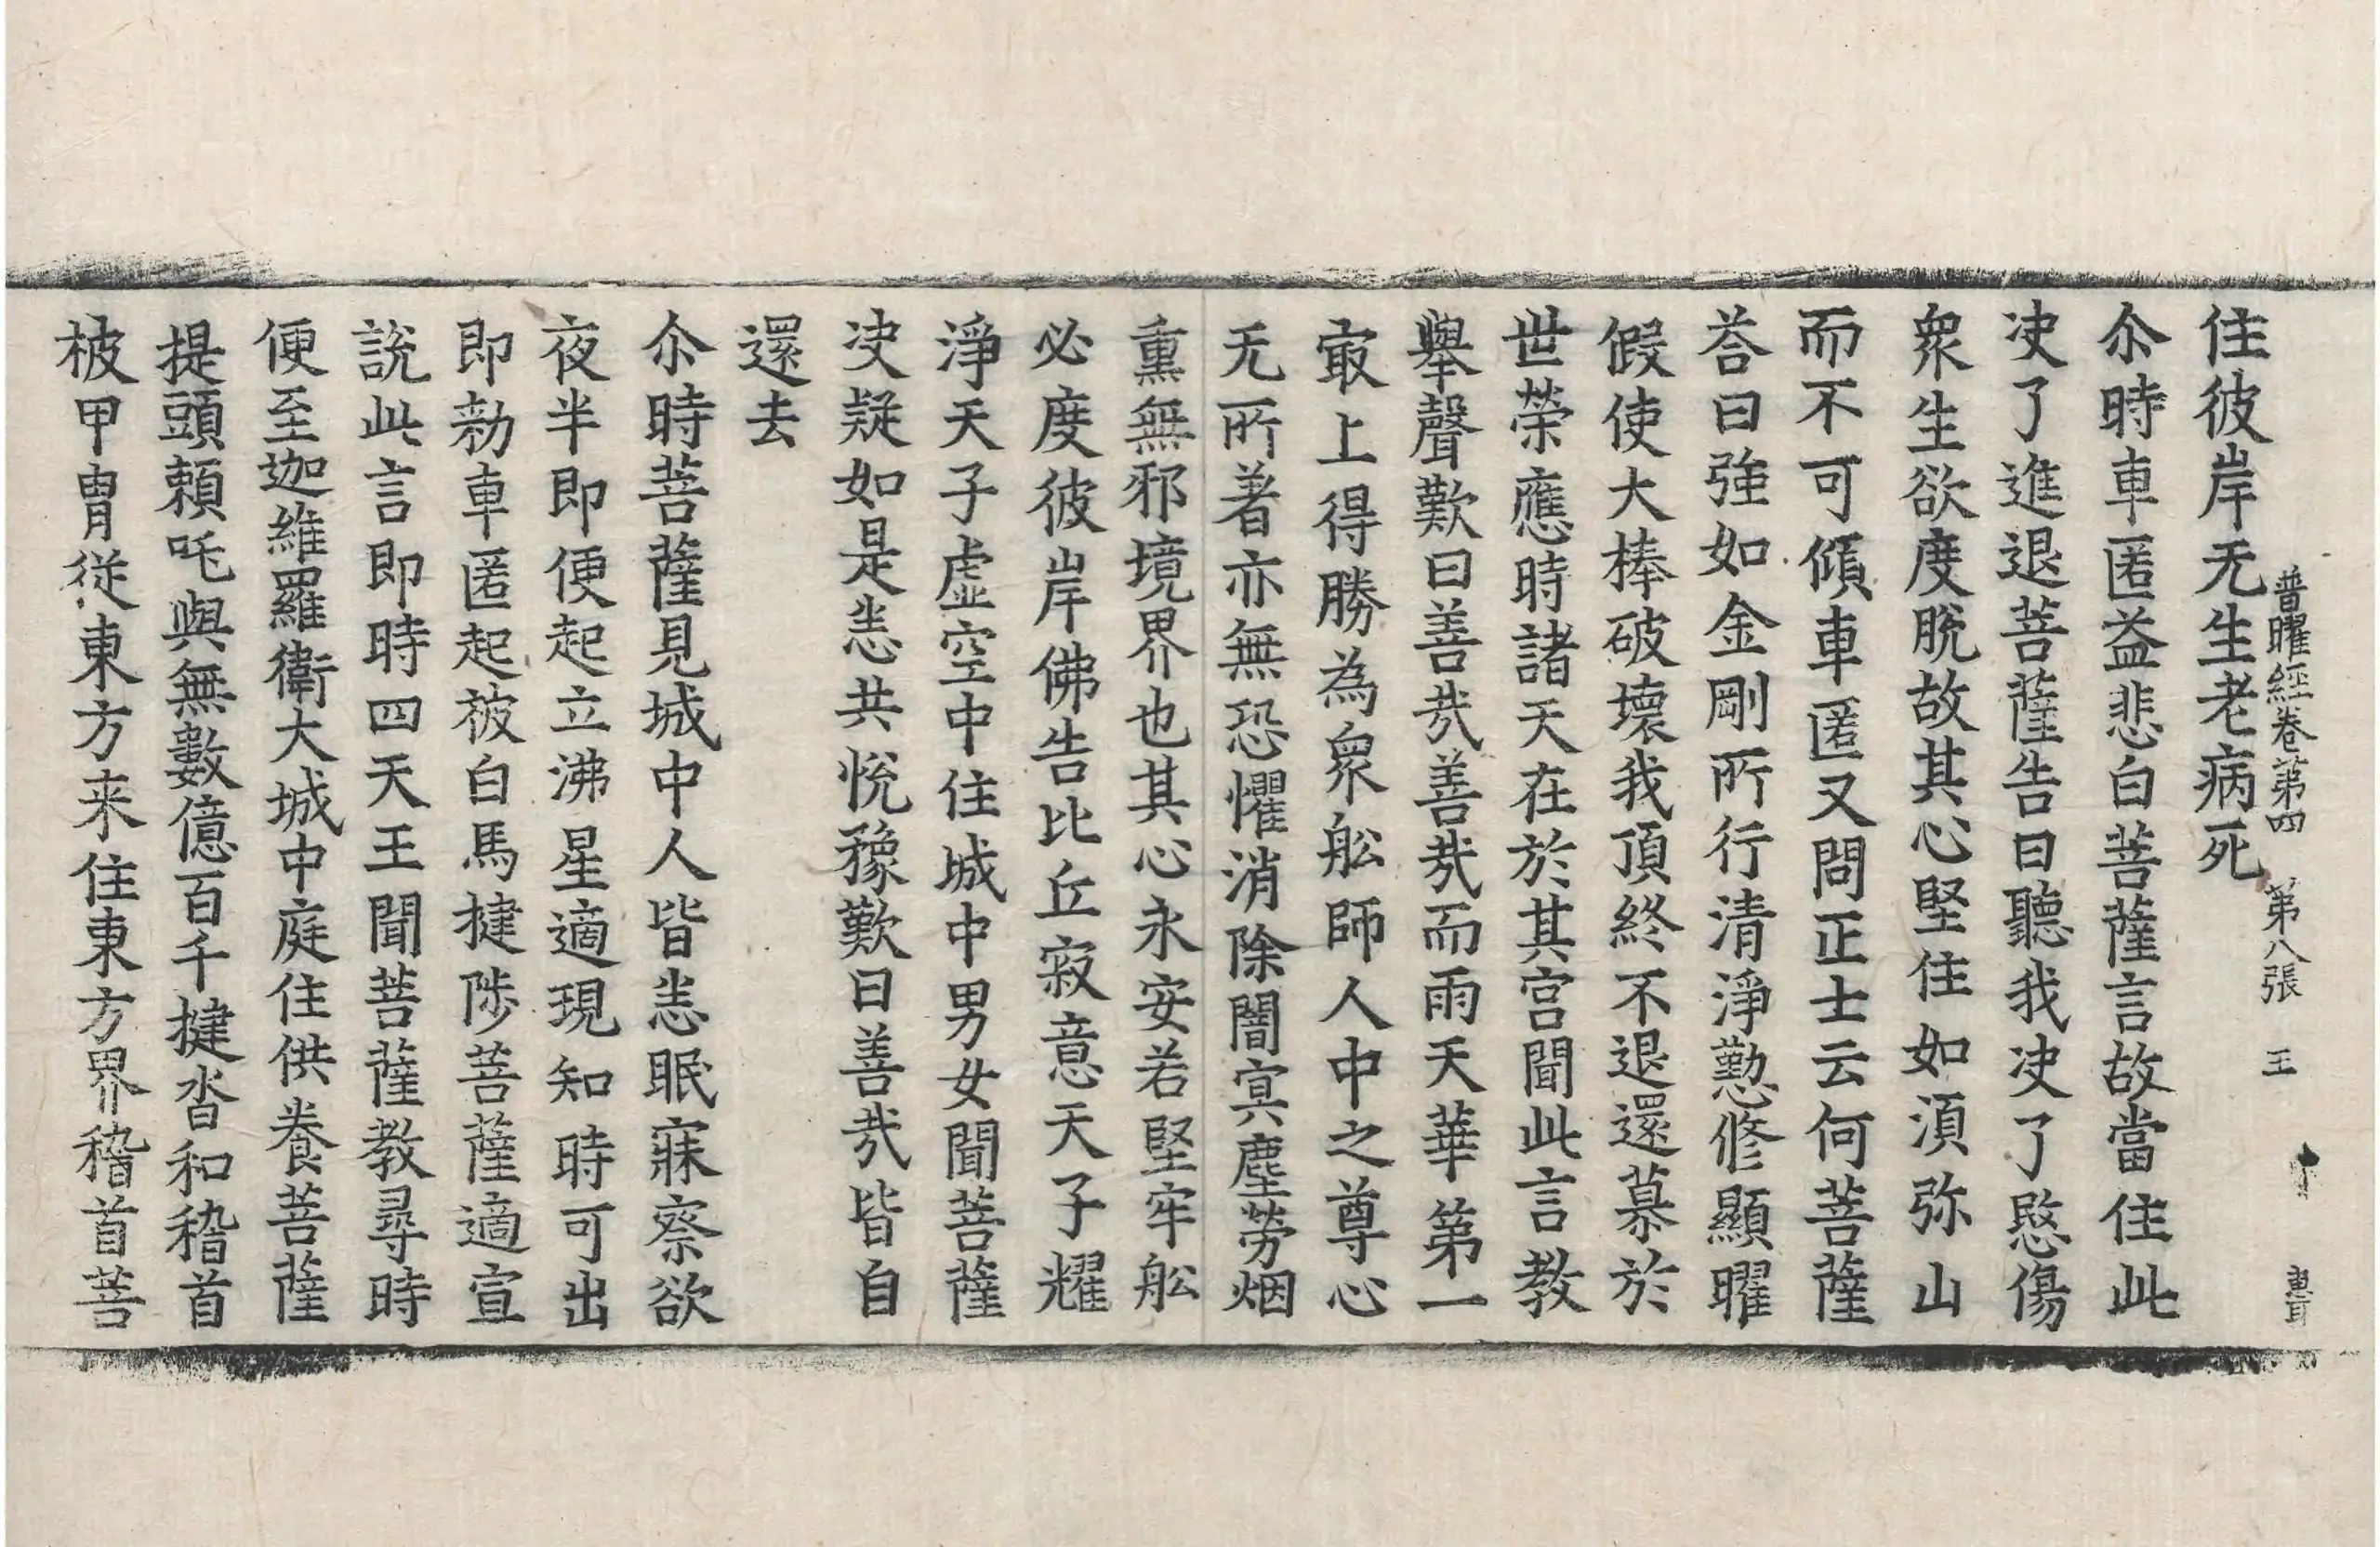 普曜經卷第四 第八張 王
住彼岸无生老病死
尒時車匿益悲白菩薩言故當住此
决了進退菩薩告曰聽我决了愍傷
衆生欲度脫故其心堅住如湏弥山
而不可傾車匿又問正士云何菩薩
荅曰強如金剛所行清淨懃修顯曜
假使大棒破壞我頂終不退還慕於
世榮應時諸天在於其宮聞此言教
舉聲歎曰善㢤善㢤而雨天華第一
㝡上得勝為衆舩師人中之尊心
无所著亦無恐懼消除闇𡨕塵勞烟
熏無邪境界也其心永安若堅牢舩
必度彼岸佛告比丘寂意天子耀
淨天子虛空中住城中男女聞菩薩
决疑如是恙共悅豫歎曰善㢤皆自
還去
尒時菩薩見城中人皆恙眠寐察欲
夜半即便起立沸星適現知時可出
即勑車匿起被白馬揵陟菩薩適宣
說此言即時四天王聞菩薩教尋時
便至迦維羅衛大城中庭住供養菩薩
提頭頼吒與無數億百千揵沓和稽首
柀甲冑從東方来住東方界稽首菩